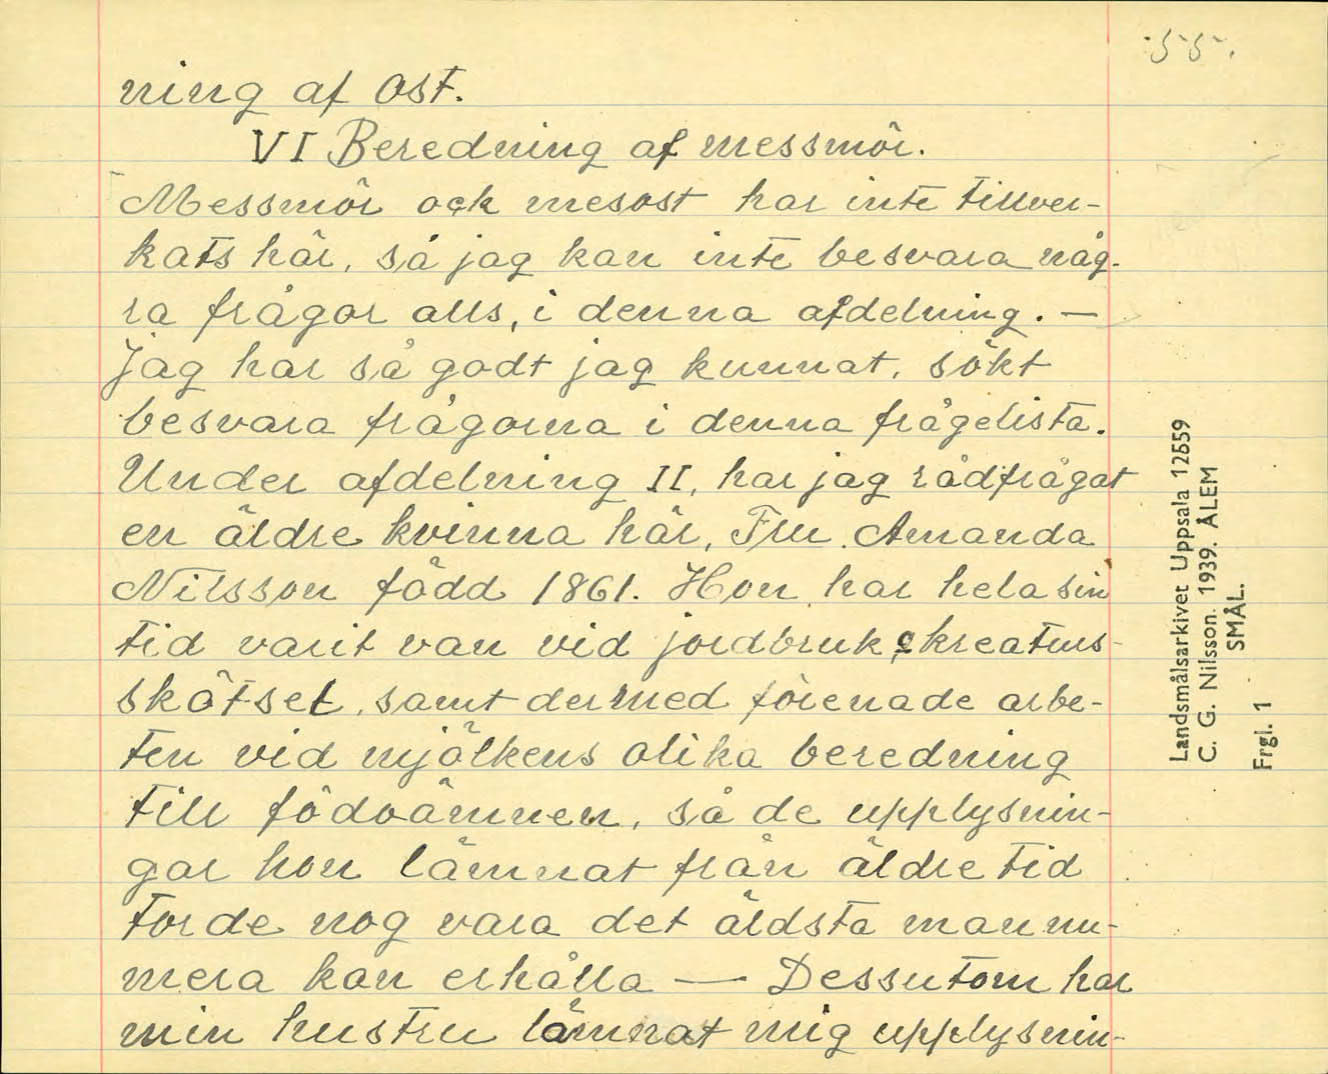 55.
ning af ost.
VI Beredning af messmör.
Messmör ock mesost har inte tillver-
kats här, så jag kan inte besvara någ-
ra frågor alls, i denna afdelning. —
Jag har så godt jag kunnat, sökt
besvara frågorna i denna frågelista.
Under afdelning II, har jag rådfrågat
en äldre kvinna här, Fru Amanda
Nilsson född 1861. Hon har hela sin
tid varit van vid jordbruk o kreaturs-
skötsel, samt dermed förenade arbe-
ten vid mjölkens olika beredning
till födoämnen, så de upplysnin-
gar hon lämnat från äldre tid
torde nog vara det äldsta man nu-
mera kan erhålla — Dessutom har
min hustru lämnat mig upplysnin-
Landsmålsarkivet Uppsala 12559
C. G. Nilsson. 1939. ÅLEM
SMÅL.
Frgl. 1